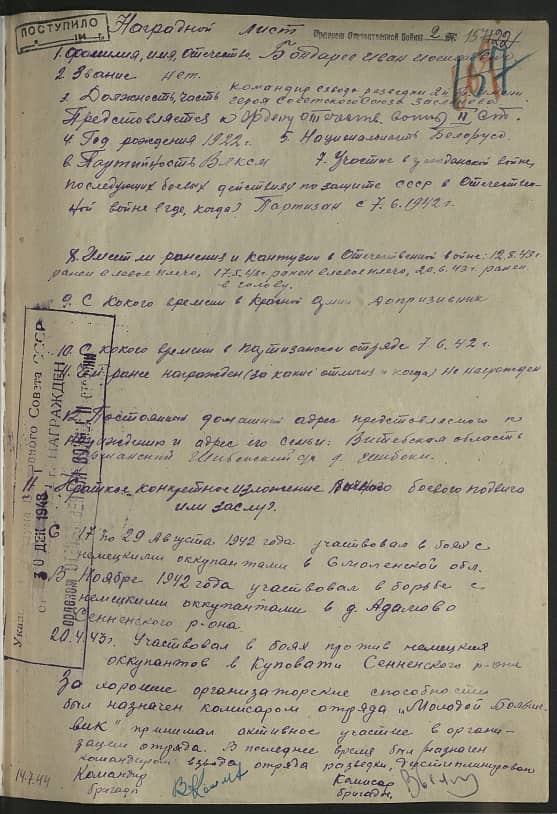 ПОСТУПИЛО
Наградной лист
Орденом Отечественной Войны 2 ст.
1. Фамилия, имя, Отчество. Бондарев Иван
2. Звание нет.
3. Должность, часть командир взвода разведки
героя Советского Союза Заслонова
Представляется к Ордену отечеств. войны II ст.
4. Год рождения 1922 г. 5. Национальность Белорус.
6 Партийность ВЛКСМ 7. Участие в гражданской войне,
последующих боевых действиях по защите СССР в Отечествен-
ной войне (где, когда) Партизан с 7.6.1942 г.
8. Имеет ли ранения и контузии в Отечественной войне:
ранен в левое плечо, ранен в левое плечо, 20.6.43 г. ранен
в голову.
9. С какого времени в Красной Армии допризивник
10. С какого времени в партизанском отряде 7 6.42 г.
11. Чем ранее награжден (за какие отличия и когда) не награжден
12. Постоянный домашний адрес представляемого к
награждению и адрес его семьи: Витебская область
II Краткое конкретное изложение личного боевого подвига
или заслуг.
17 по 29 Августа 1942 года участвовал в боях с
немецкими оккупантами в Смоленской обл.
В Ноябре 1942 года участвовал в борьбе с
немецкими оккупантами в д. Адамово
Сенненского р-она.
20.4.43 г. Участвовал в боях против немецких
оккупантов в Куповати Сенненского р-она
За хорошие организаторские способности
был назначен комисаром отряда "Молодой Большевик"
принимал активное участие в органи-
зации отряда. В последнее время был назначен
командиром взвода отряда разведки. Дисциплинирован
Командир
бригады
Комисар
бригады.
14.7.44
Верховного Совета СССР
30 ДЕК 1948 г. НАГРАЖДЕН
ОРДЕНОМ ОТЕЧЕСТВЕННОЙ ВОЙНЫ II степени